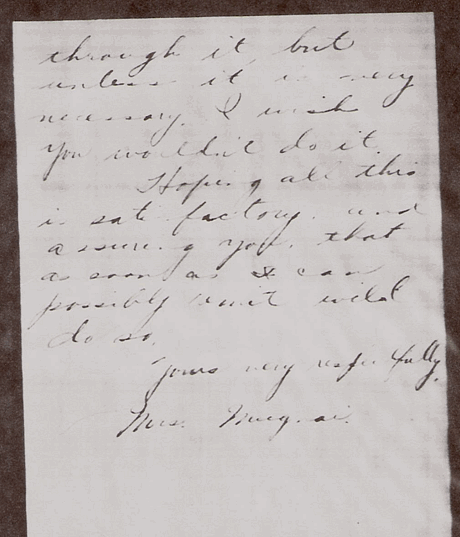 through it, but
unless it is very
necessary. I wish
you wouldn't do it.
Hoping all this
is satisfactory. and
assuring you. that
as soon as I can
possibly will
do so.
Yours very respectfully,
Mrs.